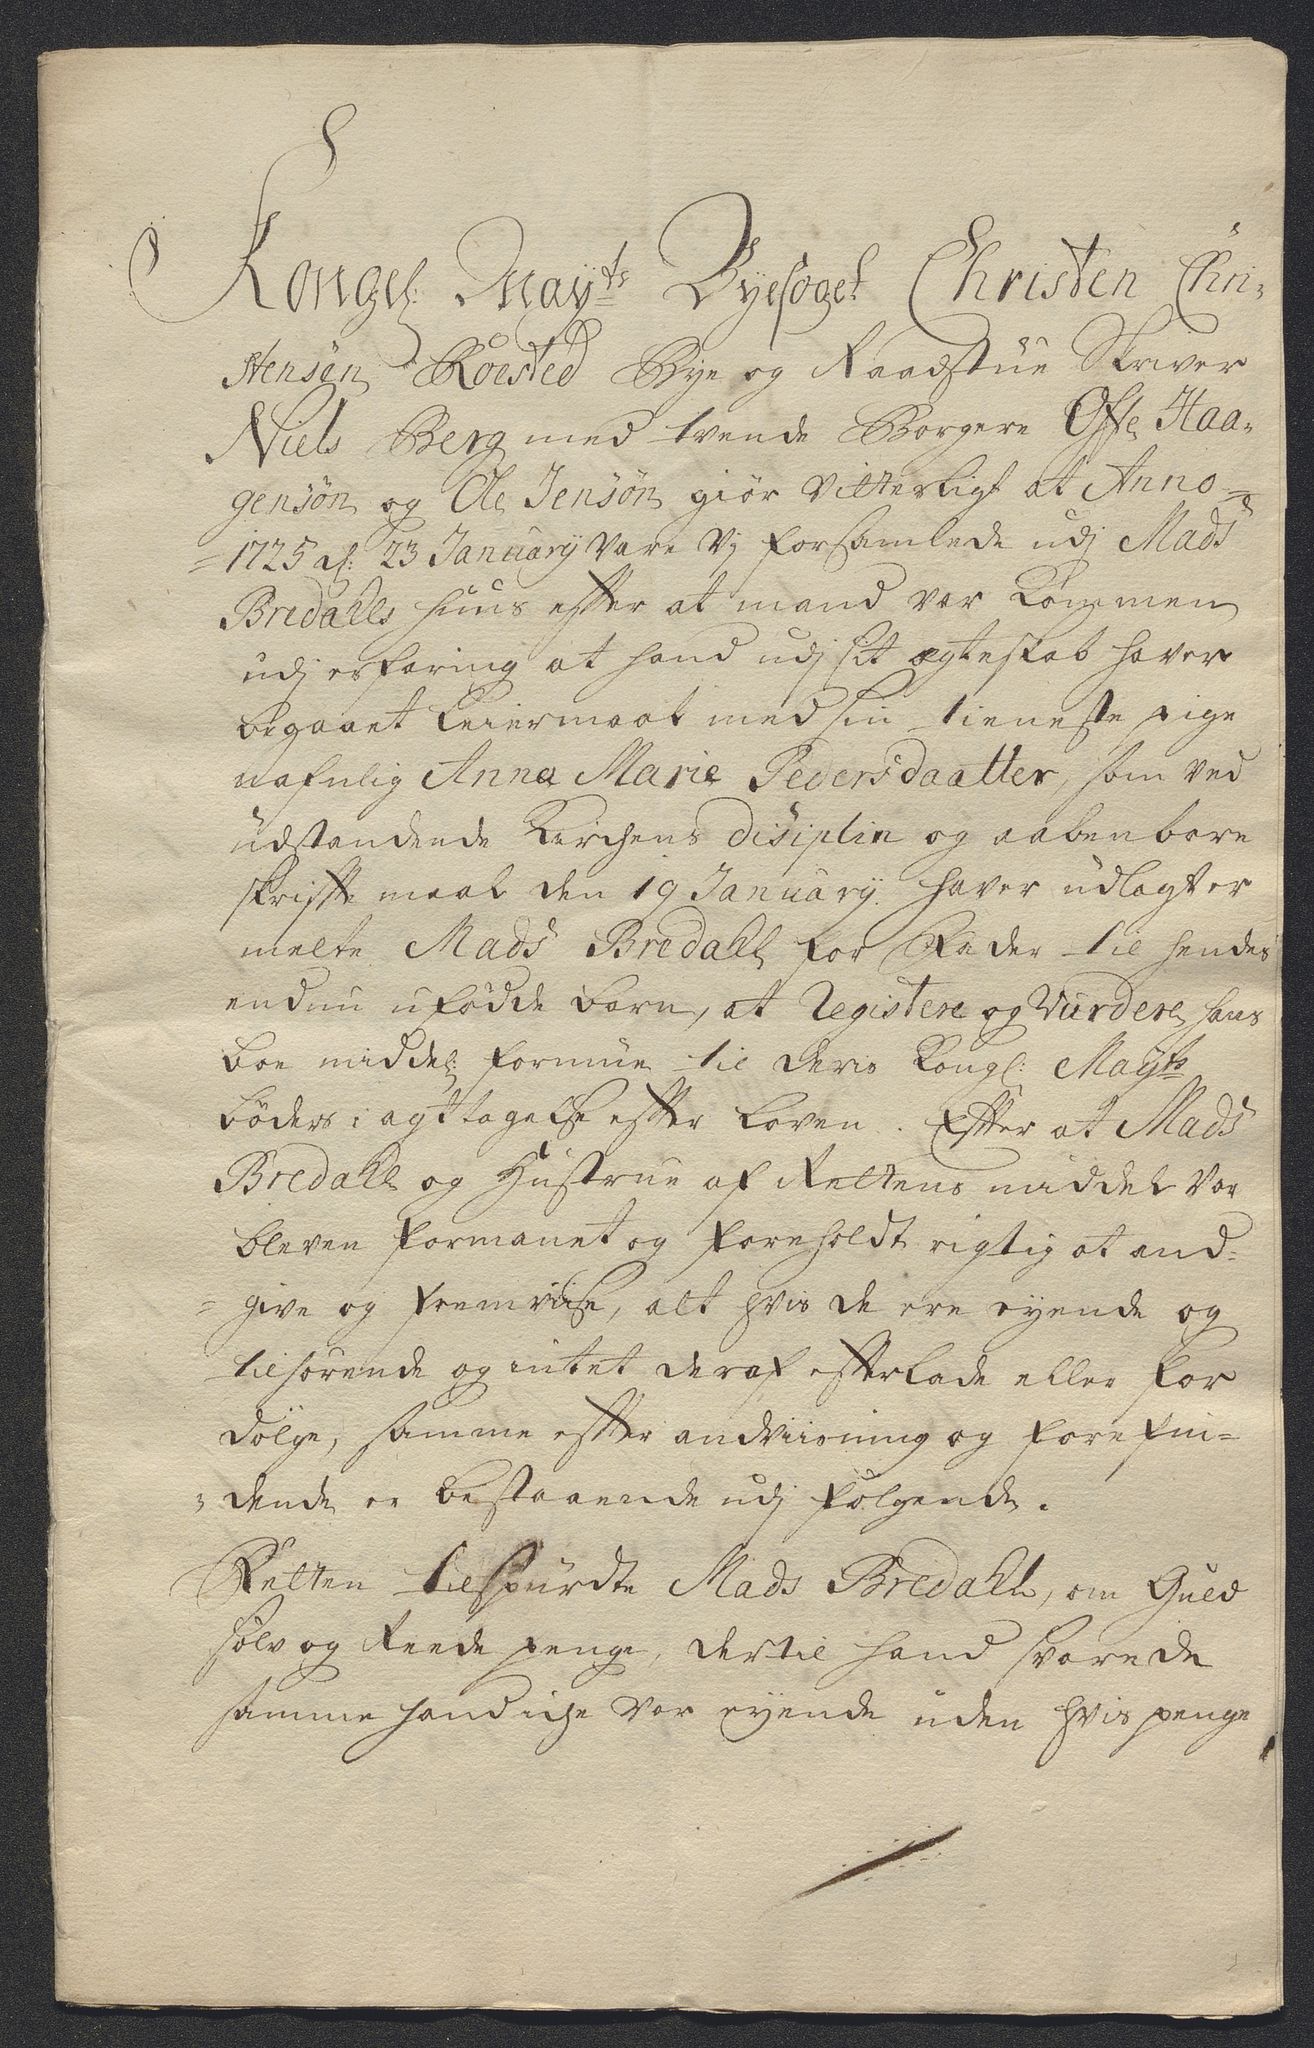 Kongel: May:ts Byefoget Christen Chri-
stensøn Roested Bye og Raadstue Skriver
Niels Berg med tvende Borgere Offe Haa-
gensøn og Ole Jensøn giør vitterligt at Anno
1725 d: 23 January vare vj forsamlede udj Mads
Bredahls huus efter at mand var kommen
udj erfaring at hand udj sit ægteskab haver
begaaet Leiermaal med sin tieneste pige
nafnlig Anna Marie Pedersdaatter, som ved
udstandende Kirchens disiplin og aabenbare
skriftemaal den 19 January haver udlagt er
melte Mads Bredahl for Fader til hendes
endnu ufødde barn, at Registere og Vurdere hans
boe middel: formue til deris Kongl: Mayts
bøders i agttagelse efter loven. Efter at Mads
Bredahl og Hustrue af Rettens middel var
bleven formanet og foreholdt rigtig at and-
give og fremviise, alt hvis de ere eyende og
tilhørende og intet deraf efterlade eller for
dølge, samme efter andviisning og forefin-
dende er bestaaende udj følgende.
Retten tilspurdte Mads Bredahl, om Guld
sølv og Reede penge, dertil hand svarede
samme hand iche var eyende uden hvis penge